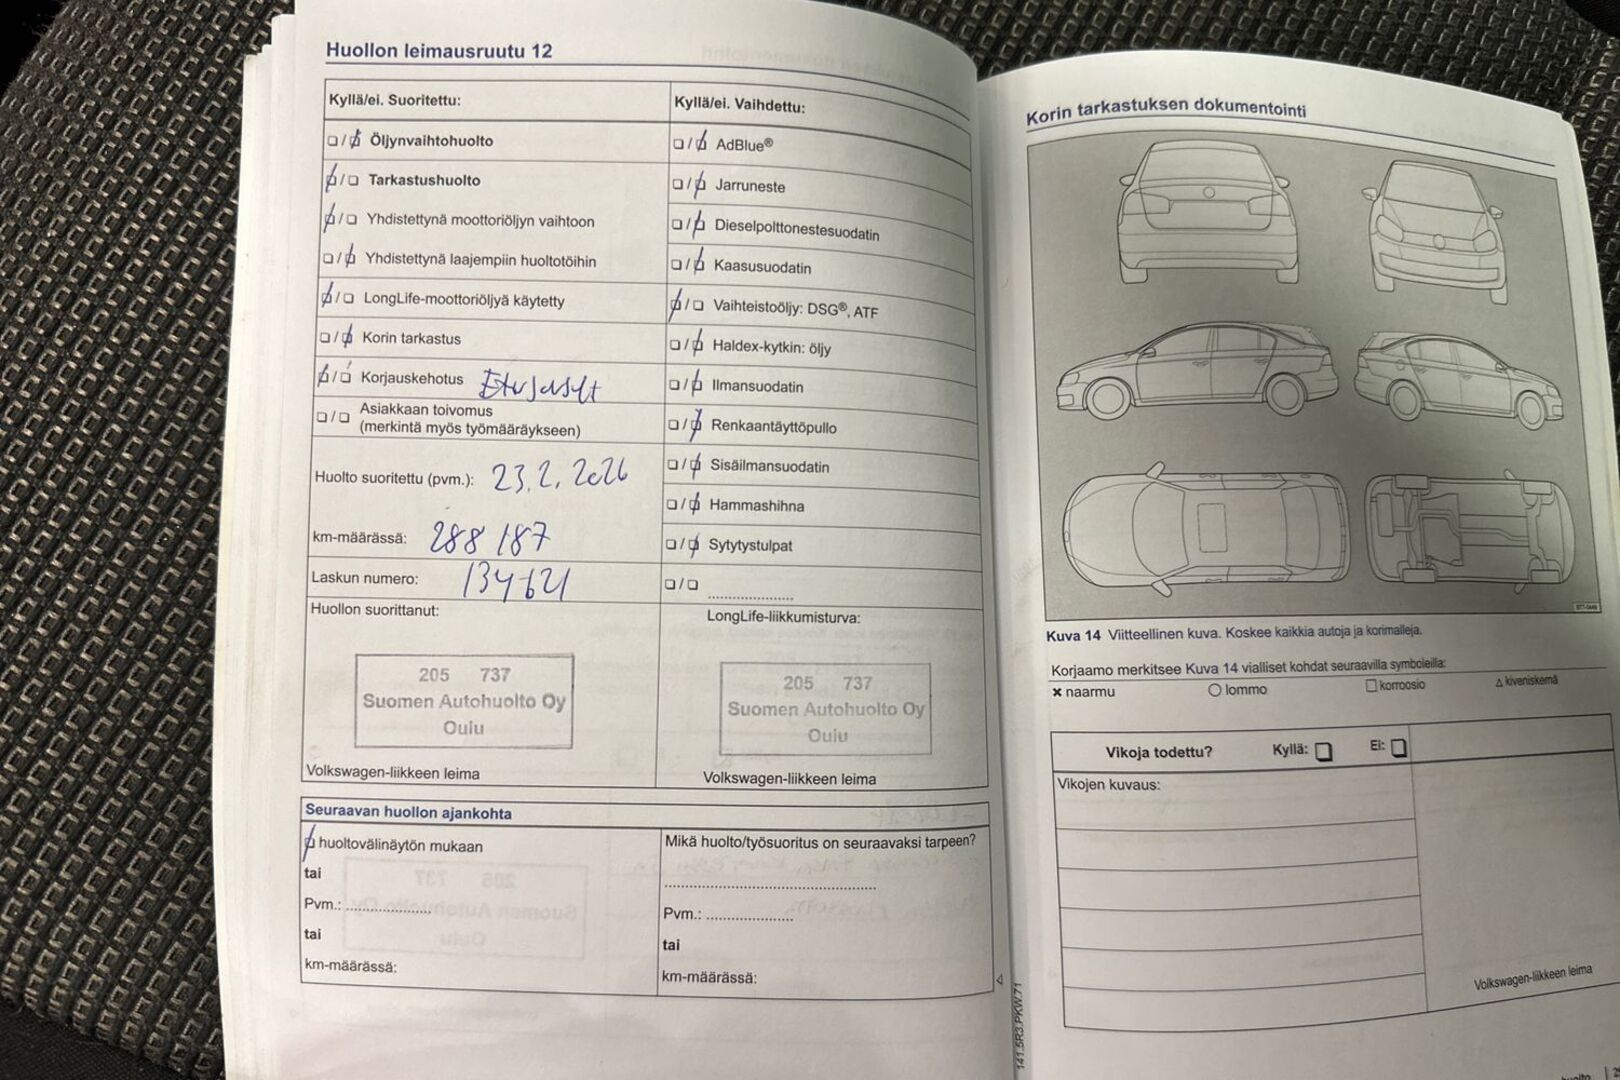 Huollon leimausruutu 12
Kyllä/ei. Suoritettu:
❏/❏ Öljynvaihtohuolto
❏/❏ Tarkastushuolto
❏/❏ Yhdistettynä moottoriöljyn vaihtoon
❏/❏ Yhdistettynä laajempiin huoltotöihin
❏/❏ LongLife-moottoriöljyä käytetty
❏/❏ Korin tarkastus
❏/❏ Korjauskehotus
❏/❏ Asiakkaan toivomus
(merkintä myös työmääräykseen)
Huolto suoritettu (pvm.): 23.2.2026
km-määrässä: 288 187
Laskun numero: 134621
Huollon suorittanut:
205 737
Suomen Autohuolto Oy
Oulu
Volkswagen-liikkeen leima
Kyllä/ei. Vaihdettu:
❏/❏ AdBlue®
❏/❏ Jarruneste
❏/❏ Dieselpolttonestesuodatin
❏/❏ Kaasusuodatin
❏/❏ Vaihteistoöljy: DSG®, ATF
❏/❏ Haldex-kytkin: öljy
❏/❏ Ilmansuodatin
❏/❏ Renkaantäyttöpullo
❏/❏ Sisäilmansuodatin
❏/❏ Hammashihna
❏/❏ Sytytystulpat
❏/❏ ....................
LongLife-liikkumisturva:
205 737
Suomen Autohuolto Oy
Oulu
Volkswagen-liikkeen leima
Seuraavan huollon ajankohta
❏ huoltovälinäytön mukaan
tai
Pvm.: ....................
tai
km-määrässä:
Mikä huolto/työsuoritus on seuraavaksi tarpeen?
..................................................
Pvm.: ....................
tai
km-määrässä:
141.5R3.PKW.71
Korin tarkastuksen dokumentointi
Kuva 14 Viitteellinen kuva. Koskee kaikkia autoja ja korimalleja.
Korjaamo merkitsee Kuva 14 vialliset kohdat seuraavilla symboleilla:
× naarmu ○ lommo □ korroosio △ kiveniskemä
Vikoja todettu? Kyllä: ❏ Ei: ❏
Vikojen kuvaus:
Volkswagen-liikkeen leima